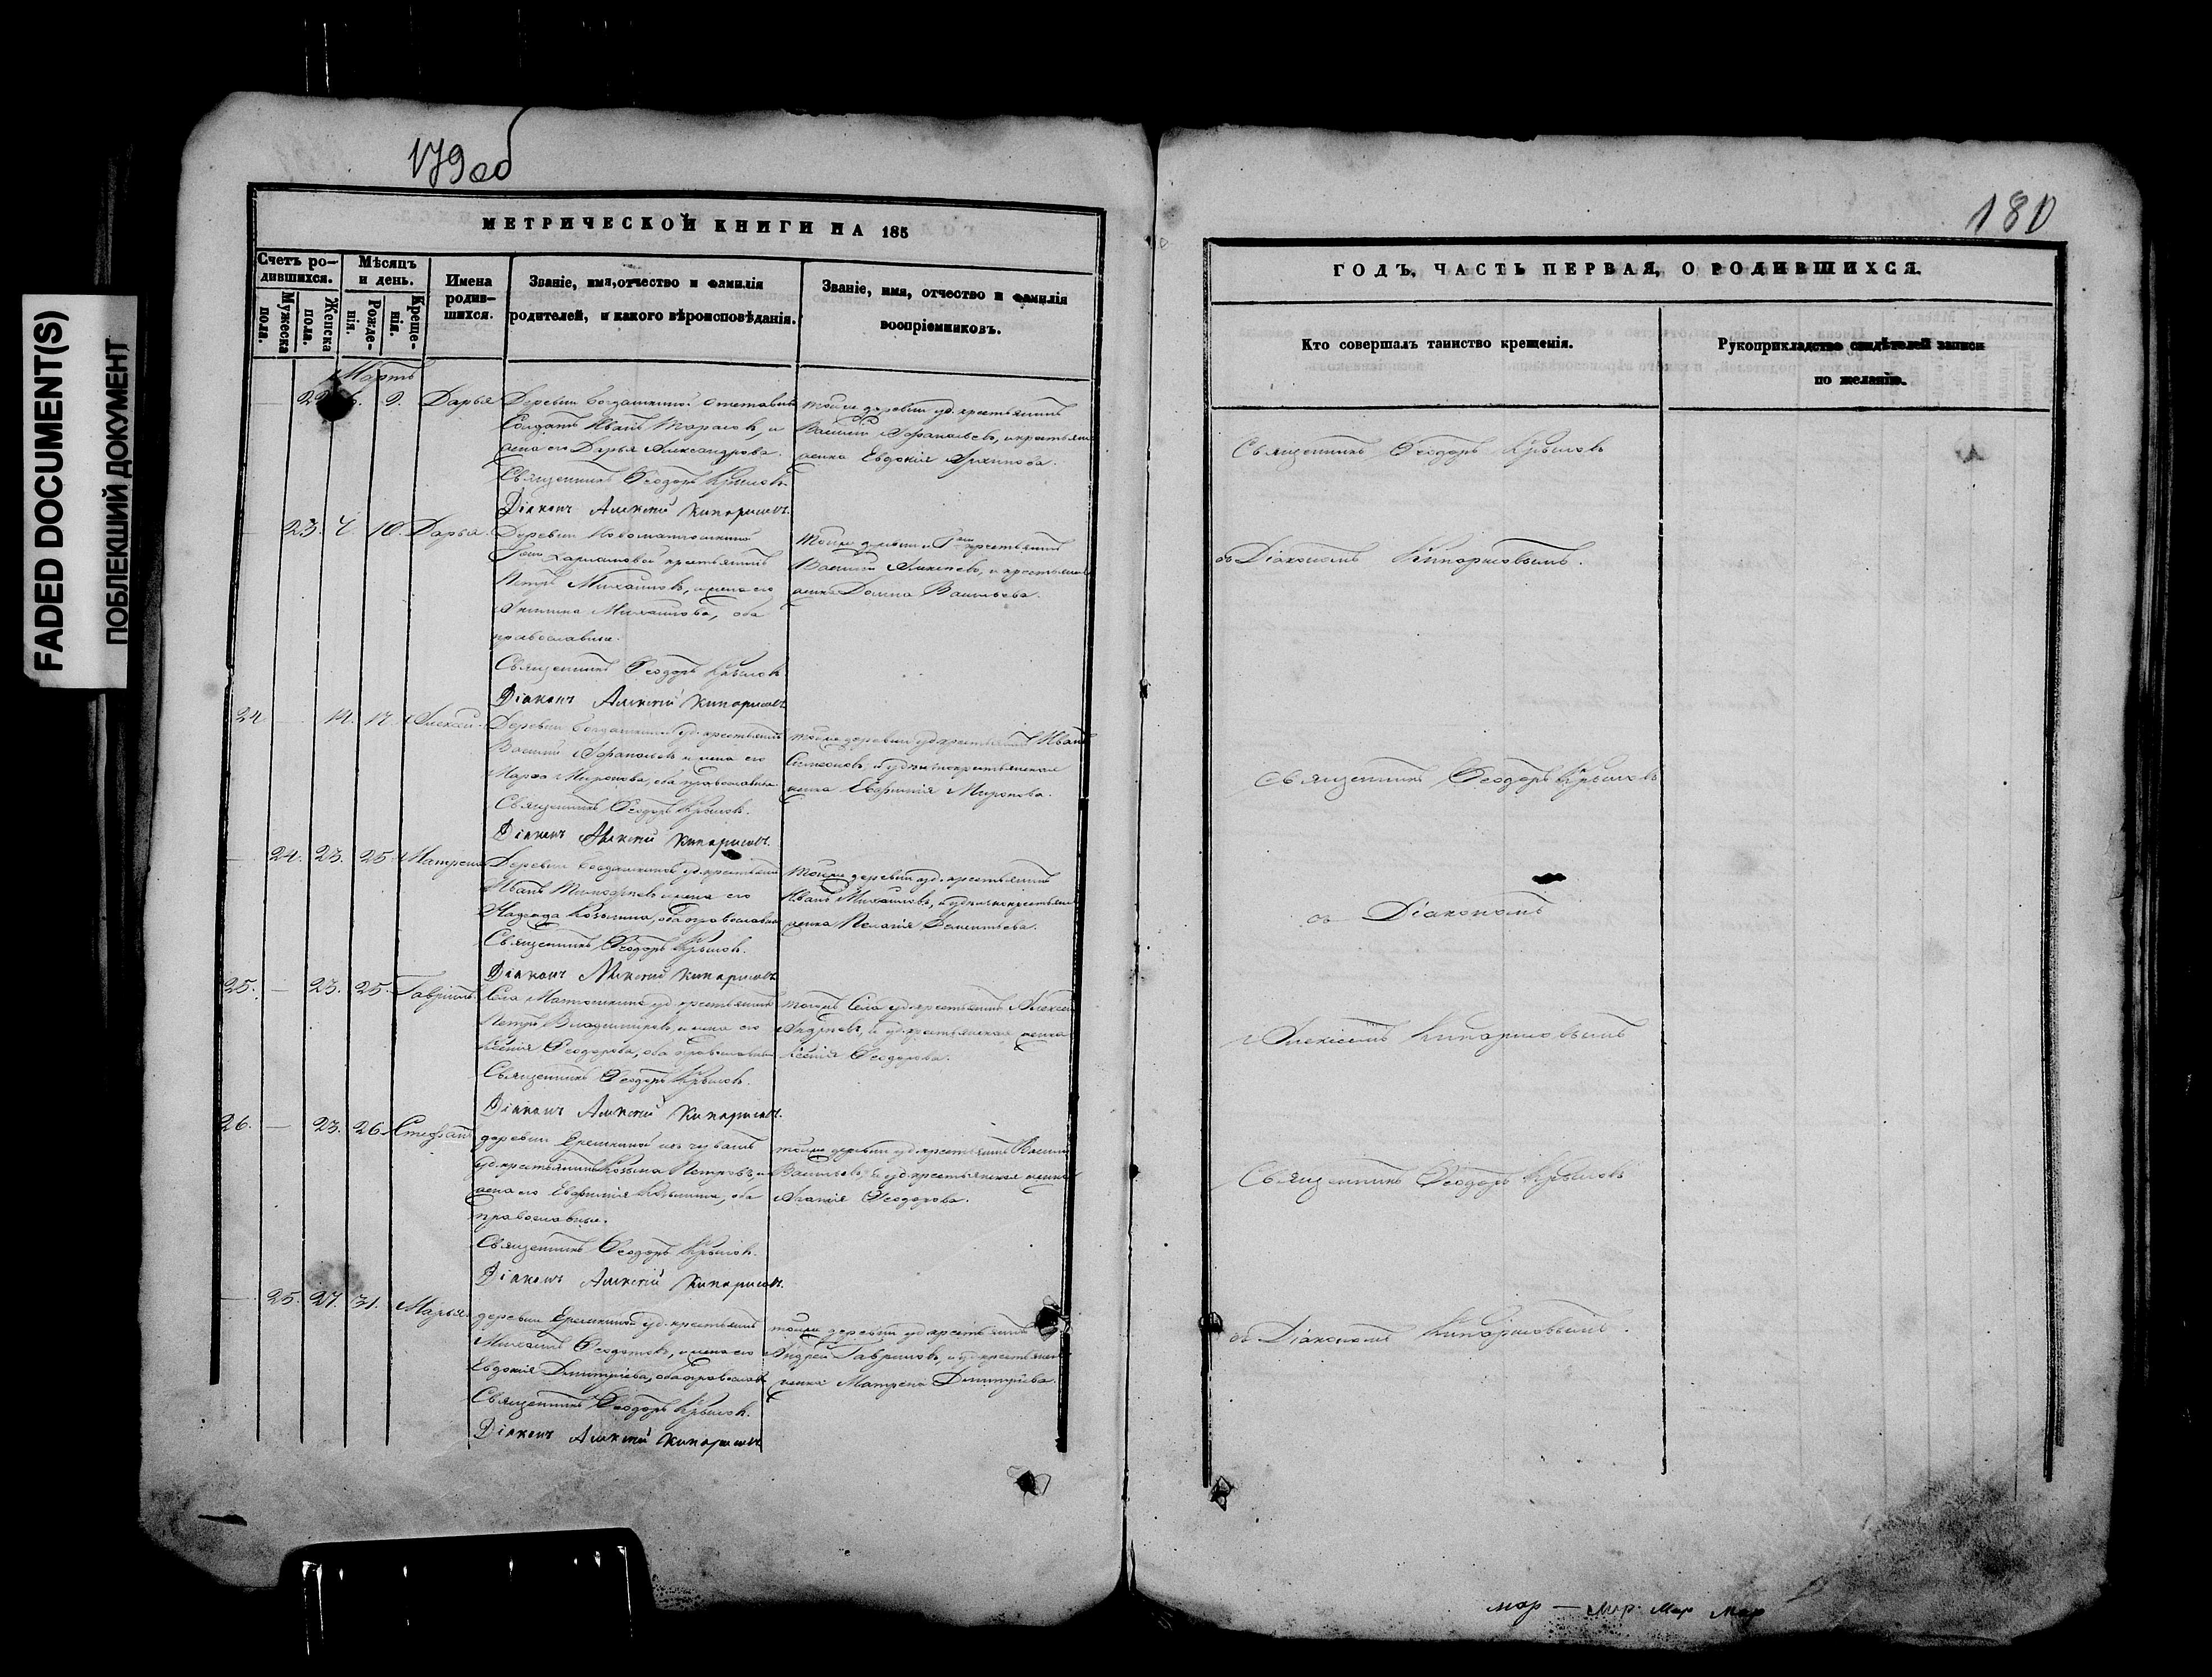 FADED DOCUMENT(S)
ПОБЛЕКШИЙ ДОКУМЕНТ
179об
МЕТРИЧЕСКОЙ КНИГИ НА 185
Счетъ ро-
дившихся.
Мужеска
пола.
Женска
пола.
Мѣсяцъ
и день.
Рожде-
нія.
Креще-
нія.
Имена
родив-
шихся.
Званіе, имя, отчество и фамилія
родителей, и какого вѣроисповѣданія.
Званіе, имя, отчество и фамилія
воспріемниковъ.
Мартъ
22. 9. Дарья Деревни отставный
Солдатъ Иванъ Тарасовъ, и
жена его Дарья Александрова.
Священникъ Ѳеодоръ Крыловъ.
Діаконъ Алексій Кипарисовъ.
тойже деревни уд. крестьянинъ
Василій Афанасьевъ, и крестьян
женка Евдокія Архипова.
23. 7. 10. Дарья. Деревни
крестьянинъ
Петръ Михаиловъ, и жена его
Михаилова, оба
православные.
Священникъ Ѳеодоръ Крыловъ
Діаконъ Алексій Кипарисовъ
тойже деревни крестьянинъ
Василій Алексѣевъ, и крестьянс
женка Домна Васильева.
24. — 14. 17. Алексій. Деревни уд. крестьянинъ
Василій Афанасьевъ и жена его
Марфа Миронова, оба православные
Священникъ Ѳеодоръ Крыловъ.
Діаконъ Алексій Кипарисовъ.
тойже деревни уд. крестьянинъ Иванъ
Симеоновъ, и удѣл. крестьянская
женка Евфимія Миронова.
— 24. 23. 25. Матрена Деревни уд. крестьянинъ
Иванъ Тимофѣевъ и жена его
Надежда Козьмина, оба православные
Священникъ Ѳеодоръ Крыловъ.
Діаконъ Алексій Кипарисовъ
тойже деревни уд. крестьянинъ
Иванъ Михаиловъ, и удѣл. крестьян
женка Пелагія Дементьева.
25. — 23. 25. Гавріилъ. Села Матюшкина уд. крестьянинъ
Петръ Владиміровъ, и жена его
Ксенія Ѳеодорова, оба православные
Священникъ Ѳеодоръ Крыловъ.
Діаконъ Алексій Кипарисовъ.
тогоже Села уд. крестьянинъ Алексѣй
Андреевъ, и уд. крестьянская женка
Ксенія Ѳеодорова.
26. — 23. 26. Стефанъ деревни Еремкиной изъ чувашъ
уд. крестьянинъ Козьма Петровъ, и
жена его Евфимія Козьмина, оба
православные.
Священникъ Ѳеодоръ Крыловъ.
Діаконъ Алексій Кипарисовъ.
тойже деревни уд. крестьянинъ Василій
Васильевъ, и уд. крестьянская женка
Ѳеодорова.
— 25. 27. 31. Марья. деревни Еремкиной уд. крестьянинъ
Михаилъ Ѳедотовъ, и жена его
Евдокія Димитріева, оба православ
Священникъ Ѳеодоръ Крыловъ.
Діаконъ Алексій Кипарисовъ
тойже деревни уд. крестьянинъ
Андрей Гавриловъ, и уд. крестьянск
женка Матрена Димитріева.
180
ГОДЪ, ЧАСТЬ ПЕРВАЯ, О РОДИВШИХСЯ.
Кто совершалъ таинство крещенія.
Рукоприкладство свидѣтелей записи
по желанію.
Священникъ Ѳеодоръ Крыловъ
съ Діакономъ Кипарисовымъ.
Священникъ Ѳеодоръ Крыловъ
съ Діакономъ
Алексіемъ Кипарисовымъ
Священникъ Ѳеодоръ Крыловъ
съ Діакономъ Кипарисовымъ.
мар — мар мар мар